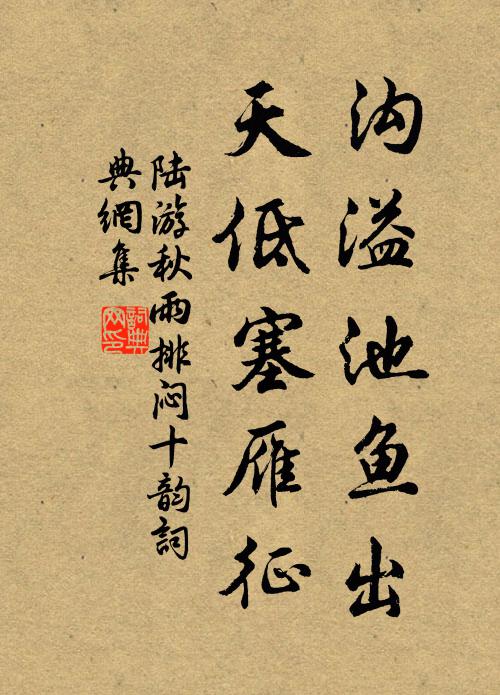 沟溢池鱼出
天低塞雁征
陆游秋雨排闷十韵詞
典網集
詞典
网印